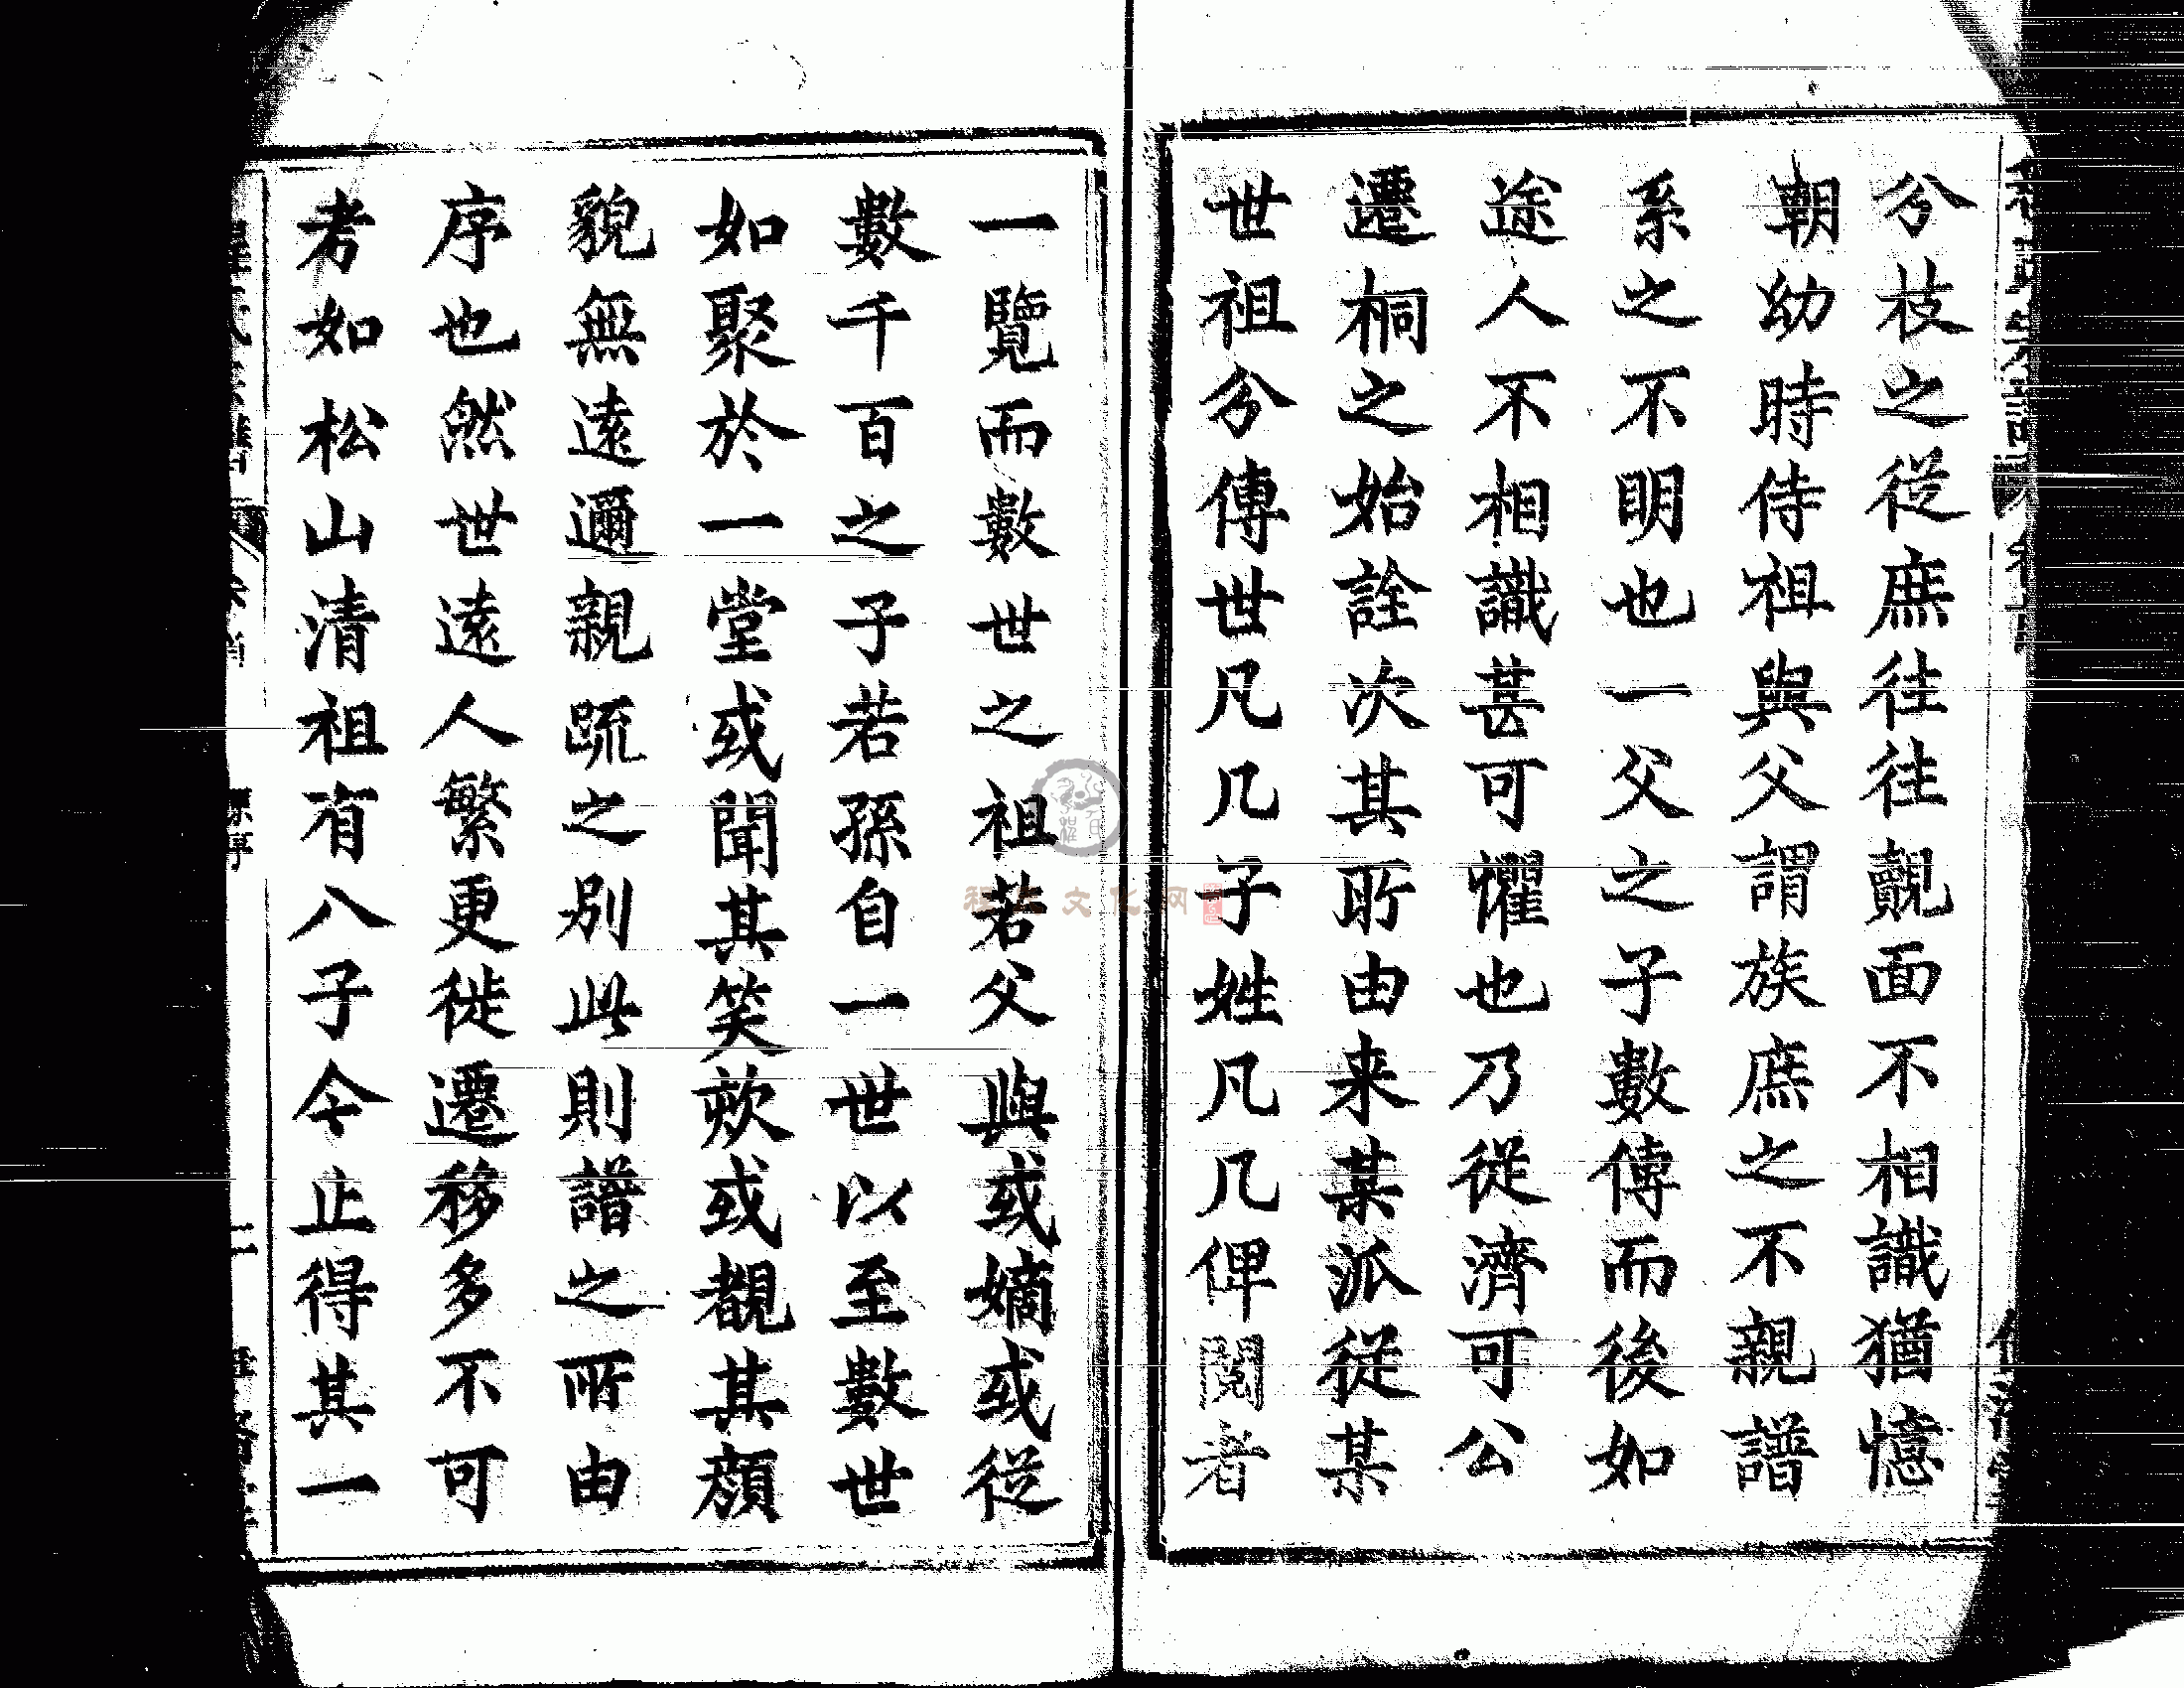 分枝之從庶徃徃覿面不相識猶憶
朝幼時侍祖與父謂族庶之不親譜
系之不明也一父之子數傳而後如
途人不相識甚可懼也乃從濟可公
遷桐之始詮次其所由来某派從某
世祖分傳世凡几子姓凡几俾閱者
一覽而數世之祖若父與或嫡或從
數千百之子若孫自一世以至數世
如聚於一堂或聞其笑歟或覩其顏
貌無遠邇親疏之别此則譜之所由
序也然世遠人繁更徙遷移多不可
考如松山清祖有八子今止得其一